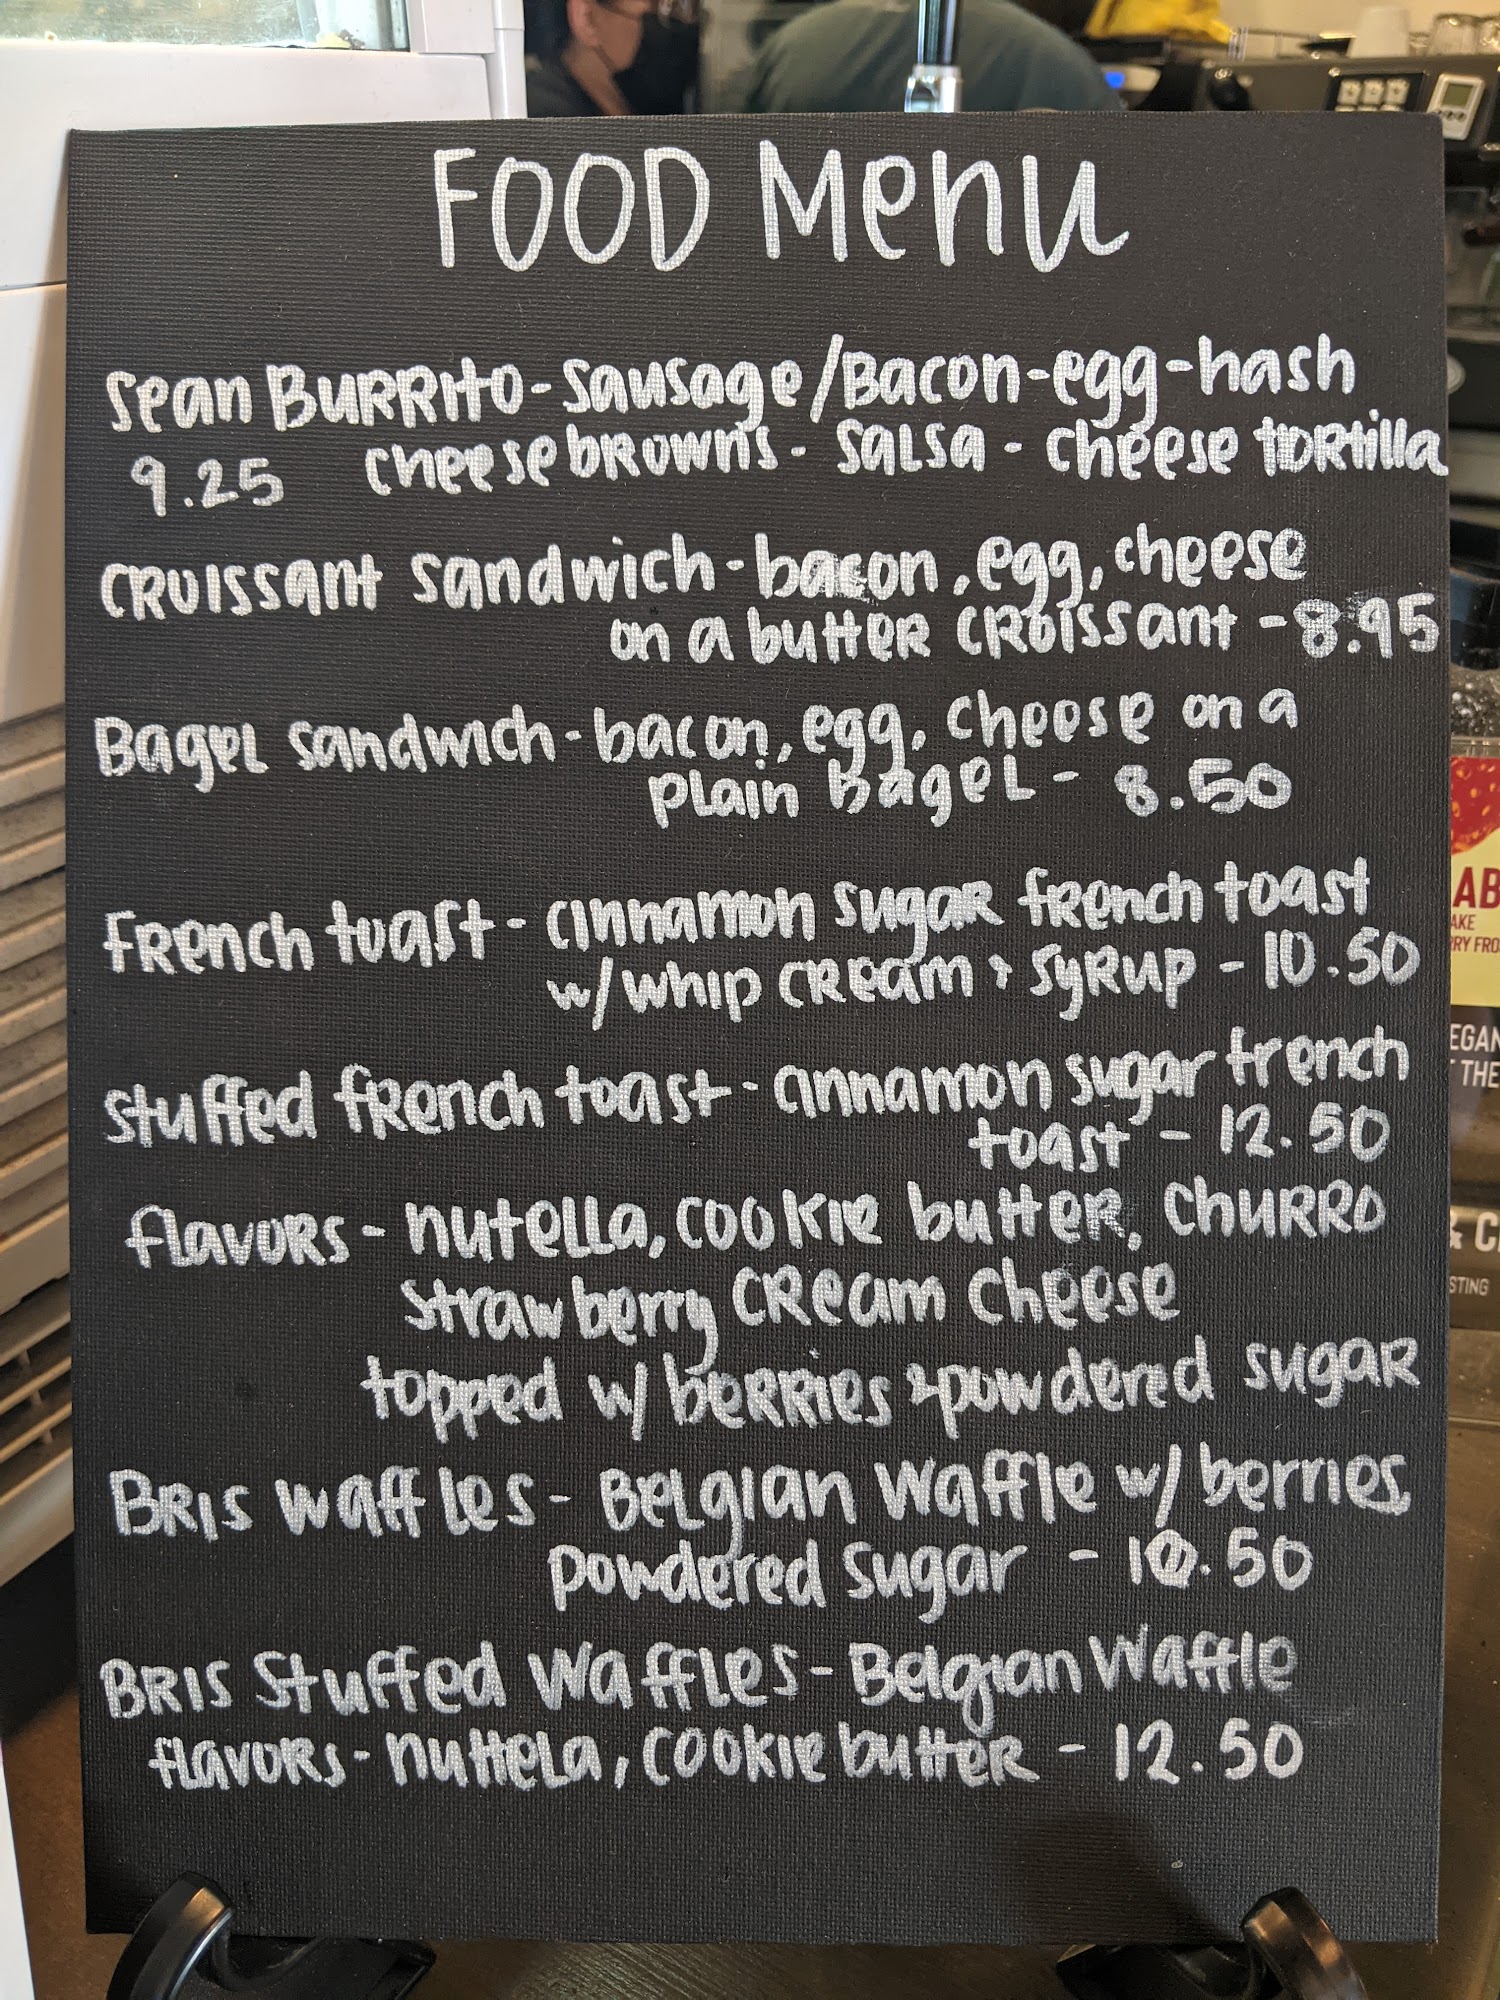 FOOD Menu
Sean BURRito - Sausage/Bacon-egg-hash
9.25 cheese browns - Salsa - cheese tortilla
CROISSANT Sandwich - bacon, egg, cheese
on a butter croissant - 8.95
Bagel Sandwich - bacon, egg, cheese on a
plain Bagel - 8.50
French toast - cinnamon sugar french toast
w/ whip cream & syrup - 10.50
Stuffed french toast - cinnamon sugar french
toast - 12.50
flavors - nutella, cookie butter, churro
strawberry cream cheese
topped w/ berries & powdered sugar
Bris Waffles - Belgian Waffle w/ berries,
powdered sugar - 10.50
Bris Stuffed Waffles - Belgian Waffle
flavors - nuttela, cookie butter - 12.50
AB
AKE
RRY FRO
EGAN
THE
& C
STING